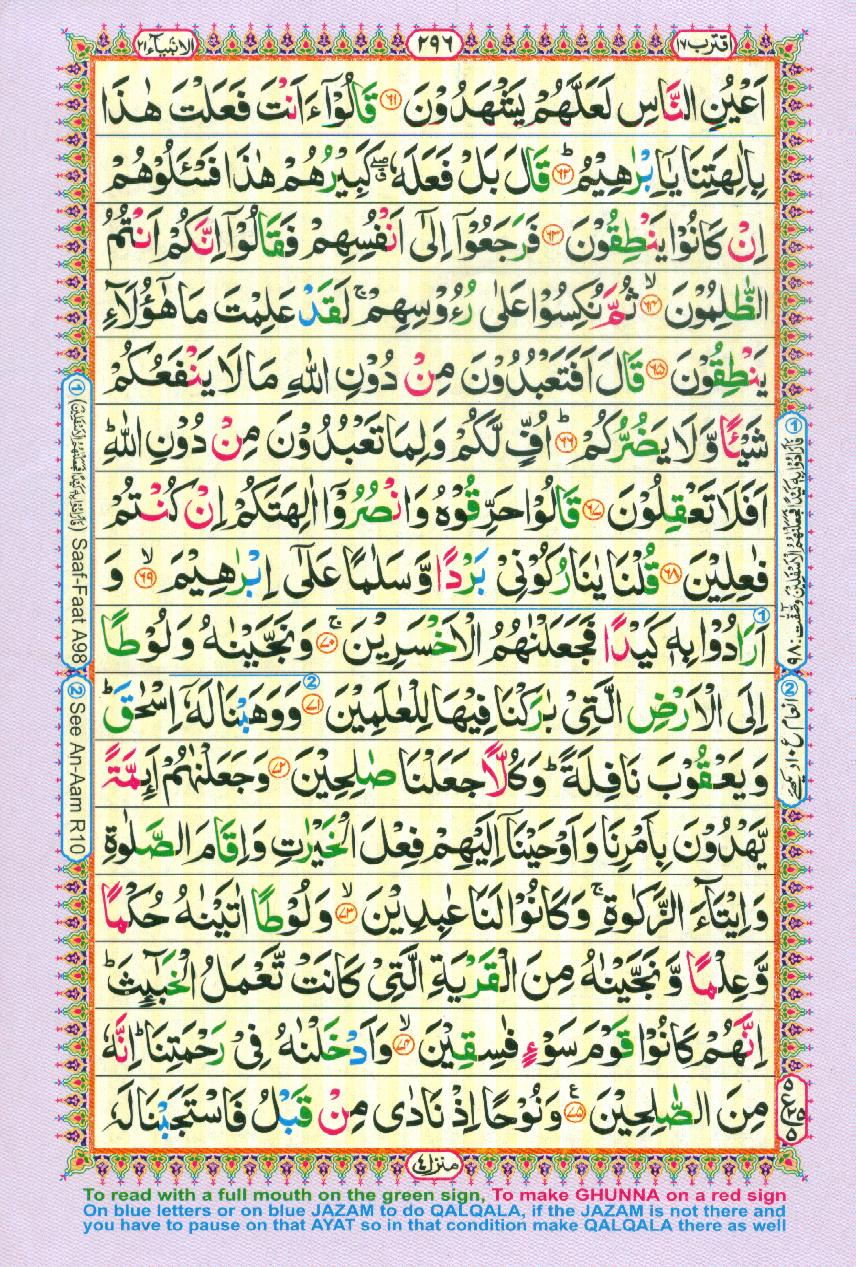 اقترب ١٧
٢٩٦
الانبیآء ٢١
اَعْیُنِ النَّاسِ لَعَلَّهُمْ یَشْهَدُوْنَ ۝٦١ قَالُوْۤا ءَاَنْتَ فَعَلْتَ هٰذَا
بِاٰلِهَتِنَا یٰۤاِبْرٰهِیْمُ ؕ۝٦٢ قَالَ بَلْ فَعَلَهٗ ۖۗ كَبِیْرُهُمْ هٰذَا فَسْـَٔلُوْهُمْ
اِنْ كَانُوْا یَنْطِقُوْنَ ۝٦٣ فَرَجَعُوْۤا اِلٰۤی اَنْفُسِهِمْ فَقَالُوْۤا اِنَّكُمْ اَنْتُمُ
الظّٰلِمُوْنَ ۙ۝٦٤ ثُمَّ نُكِسُوْا عَلٰی رُءُوْسِهِمْ ۚ لَقَدْ عَلِمْتَ مَا هٰۤؤُلَآءِ
یَنْطِقُوْنَ ۝٦٥ قَالَ اَفَتَعْبُدُوْنَ مِنْ دُوْنِ اللّٰهِ مَا لَا یَنْفَعُكُمْ
شَیْـًٔا وَّ لَا یَضُرُّكُمْ ؕ۝٦٦ اُفٍّ لَّكُمْ وَ لِمَا تَعْبُدُوْنَ مِنْ دُوْنِ اللّٰهِ ؕ
اَفَلَا تَعْقِلُوْنَ ۝٦٧ قَالُوْا حَرِّقُوْهُ وَ انْصُرُوْۤا اٰلِهَتَكُمْ اِنْ كُنْتُمْ
فٰعِلِیْنَ ۝٦٨ قُلْنَا یٰنَارُ كُوْنِیْ بَرْدًا وَّ سَلٰمًا عَلٰۤی اِبْرٰهِیْمَ ۙ۝٦٩ وَ
اَرَادُوْا بِهٖ كَیْدًا فَجَعَلْنٰهُمُ الْاَخْسَرِیْنَ ۚ۝٧٠ وَ نَجَّیْنٰهُ وَ لُوْطًا
اِلَی الْاَرْضِ الَّتِیْ بٰرَكْنَا فِیْهَا لِلْعٰلَمِیْنَ ۝٧١ وَ وَهَبْنَا لَهٗۤ اِسْحٰقَ ؕ
وَ یَعْقُوْبَ نَافِلَةً ؕ وَ كُلًّا جَعَلْنَا صٰلِحِیْنَ ۝٧٢ وَ جَعَلْنٰهُمْ اَىِٕمَّةً
یَّهْدُوْنَ بِاَمْرِنَا وَ اَوْحَیْنَاۤ اِلَیْهِمْ فِعْلَ الْخَیْرٰتِ وَ اِقَامَ الصَّلٰوةِ
وَ اِیْتَآءَ الزَّكٰوةِ ۚ وَ كَانُوْا لَنَا عٰبِدِیْنَ ۙ۝٧٣ وَ لُوْطًا اٰتَیْنٰهُ حُكْمًا
وَّ عِلْمًا وَّ نَجَّیْنٰهُ مِنَ الْقَرْیَةِ الَّتِیْ كَانَتْ تَّعْمَلُ الْخَبٰٓىِٕثَ ؕ
اِنَّهُمْ كَانُوْا قَوْمَ سَوْءٍ فٰسِقِیْنَ ۙ۝٧٤ وَ اَدْخَلْنٰهُ فِیْ رَحْمَتِنَا ؕ اِنَّهٗ
مِنَ الصّٰلِحِیْنَ ۠۝٧٥ وَ نُوْحًا اِذْ نَادٰی مِنْ قَبْلُ فَاسْتَجَبْنَا لَهٗ
منزل ٤
① فَاَرَادُوْا بِهٖ كَیْدًا فَجَعَلْنٰهُمُ الْاَسْفَلِیْنَ وصٰٓفّٰت ٩٨
② انعام ع ١٠ دیکھئے
① (فَاَرَادُوْا بِهٖ كَیْدًا فَجَعَلْنٰهُمُ الْاَسْفَلِیْنَ) Saaf-Faat A98
② See An-Aam R 10
To read with a full mouth on the green sign, To make GHUNNA on a red sign
On blue letters or on blue JAZAM to do QALQALA, if the JAZAM is not there and
you have to pause on that AYAT so in that condition make QALQALA there as well